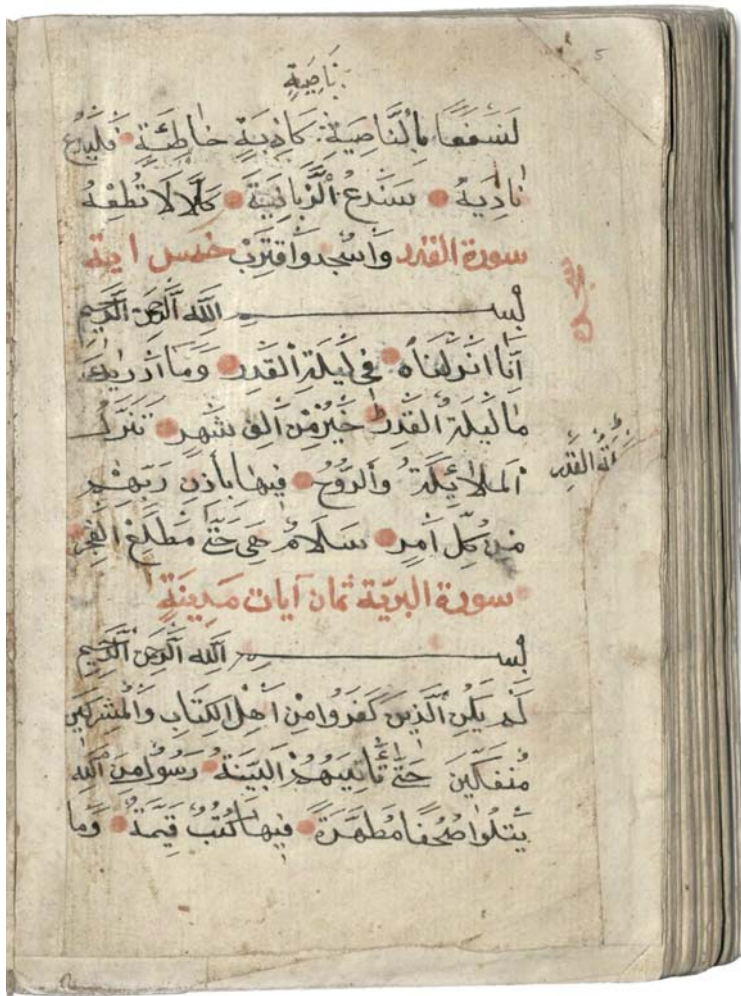 نَاصِيَةٍ
لَنَسفَعًا بِالنَّاصِيَةِ كَاذِبَةٍ خَاطِئَةٍ فَليَدعُ
نَادِيَهُ سَنَدعُ الزَّبَانِيَةَ كَلَّا لَا تُطِعهُ
سورة القدر وَاسجُد وَاقتَرِب خمس اية
بسم الله الرَّحمن الرَّحيم
اَنَّا اَنزَلنَاهُ فِي لَيلَةِ القَدرِ وَمَا اَدرَيكَ
مَا لَيلَةُ القَدرِ خَيرٌ مِن اَلفِ شَهرٍ تَنَزَّلُ
لَيلَةُ القَدرِ
اَلمَلَائِكَةُ وَالرُّوحُ فِيهَا بِأِذنِ رَبِّهِم
مِن كُلِّ اَمرٍ سَلَامٌ هِيَ حَتَّى مَطلَعِ الفَجرِ
سورة البريّة ثمان آيات مَدِينَةٍ
بسم الله الرَّحمن الرَّحيم
لَم يَكُنِ الَّذِينَ كَفَرُوا مِن اَهلِ الكِتَابِ وَالمُشرِكِينَ
مُنفَكِّينَ حَتَّى تَأتِيَهُمُ البَيِّنَةُ رَسُولٌ مِنَ اللهِ
يَتلُوا صُحُفًا مُطَهَّرَةً فِيهَا كُتُبٌ قَيِّمَةٌ وَمَا